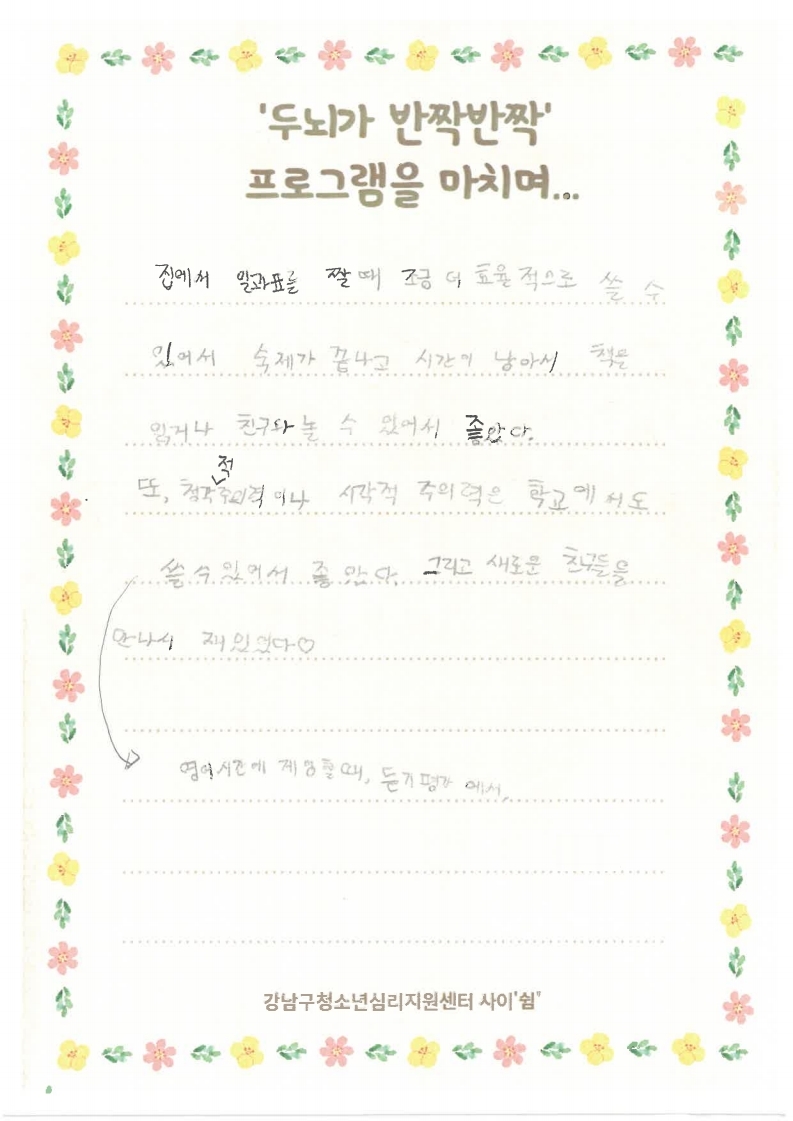 '두뇌가 반짝반짝'
프로그램을 마치며...
집에서 일과표를 짤 때 조금 더 효율적으로 쓸 수
있어서 숙제가 끝나고 시간이 남아서 책을
읽거나 친구와 놀 수 있어서 좋았다.
적
또, 청각주의력이나 시각적 주의력은 학교에서도
쓸 수 있어서 좋았다. 그리고 새로운 친구들을
만나서 재밌었다♡
영어시간에 게임할 때, 듣기평가에서.
강남구청소년심리지원센터 사이'쉼'